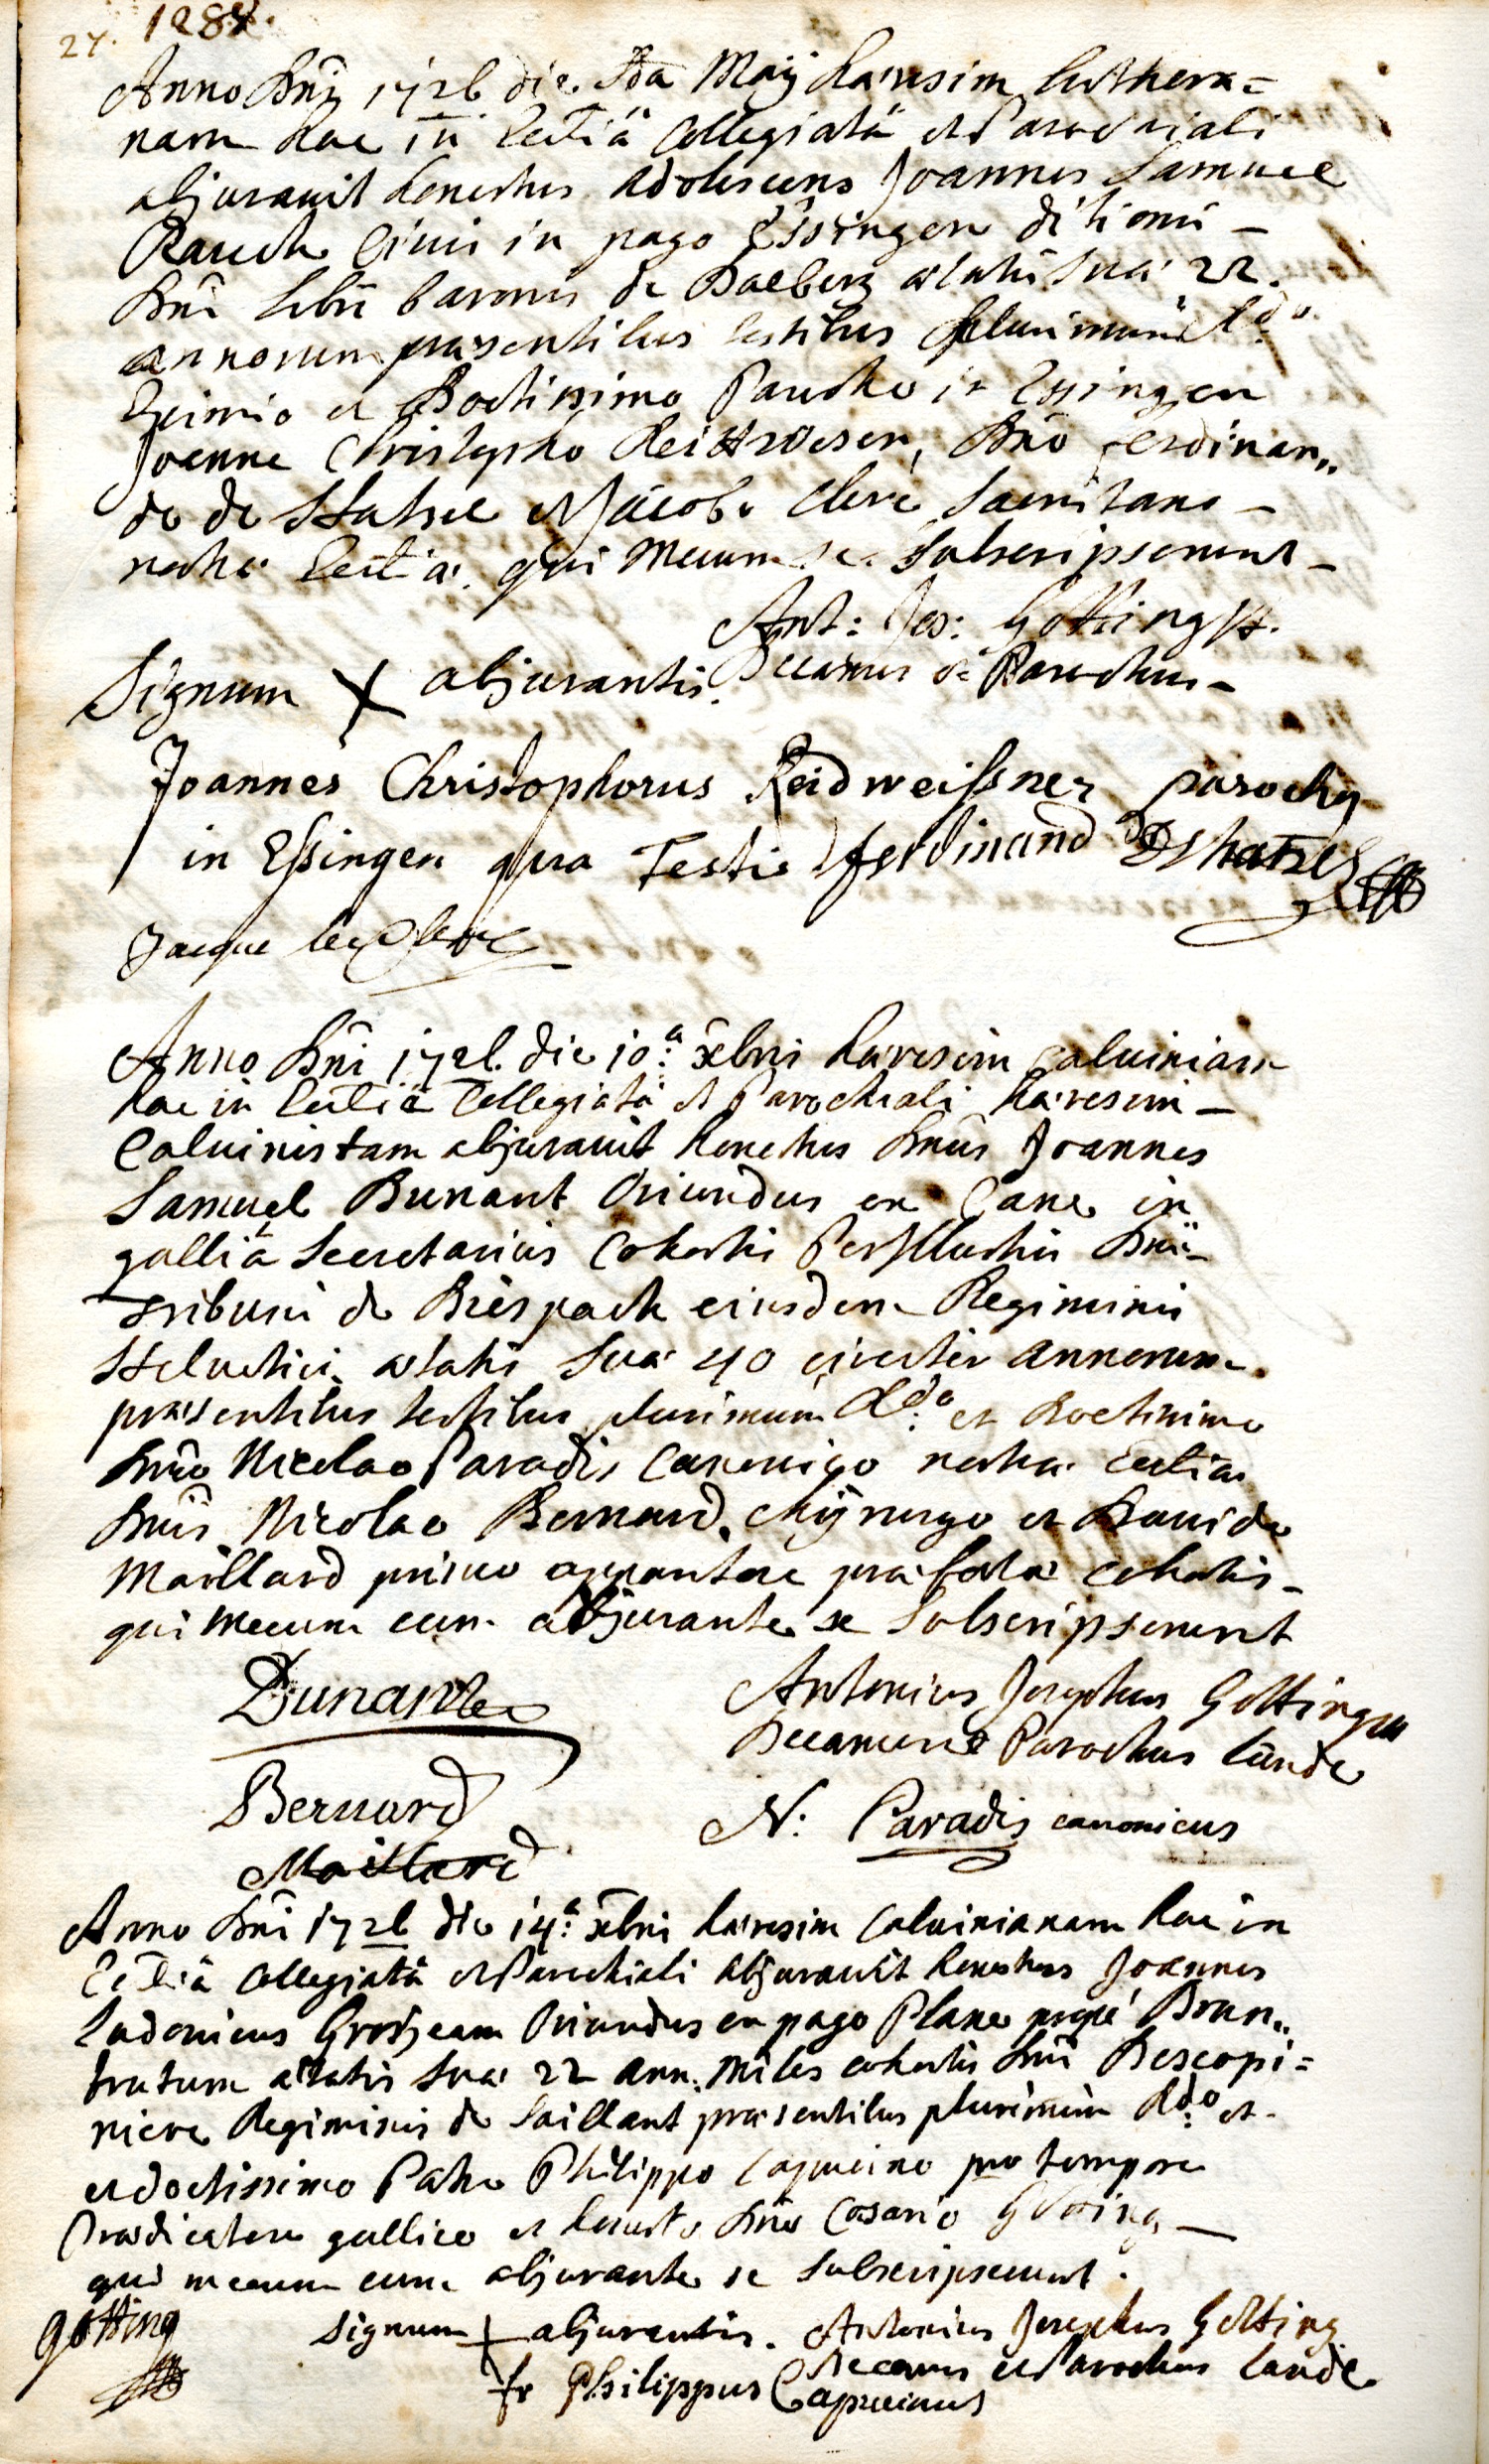 27. 1284.
Anno Dnj 1726 die Maij haeresim luthera=
nam hac in Ecclia Collegiata et Parochiali
abjuravit honestus Adolescens Joannes Samuel
Rauch Civis in pago Essingen ditionis -
Dni liberi baronis de Dalberg aetatis suae 22.
annorum praesentibus testibus plurimum Rdo
Eximio et Doctissimo Parocho in Essingen
Joanne Christopho Reittwesen, Dno ferdinan„
do de Hatzel et Jacobo Clerc sacristano -
nostrae Eccliae qui mecum se subscripserunt -
Ant: Jos: Götting
Signum X abjurantis. Decanus et Parochus -
Joannes Christophorus Reidweissner parochy
in Essingen qua Testis ferdinand D Hatzel
Jacque le Clerc
Anno Dni 1726. die 10.a xbris haeresim calvinian
hac in Ecclia Collegiata et Parochiali haeresim -
Calvinistam abjuravit honestus Dnus Joannes
Samuel Bunant Oriundus ex Cane in
gallia Secretarius Cohortis Perillustris Dni -
Tribuni de Diespach eiusdem Regiminis
Helvetici aetatis suae 40 circiter annorum.
praesentibus testibus plurimum Rdo et Doctissimo
Dno Nicolao Paradis Canonico nostrae Eccliae
Dnis Nicolao Bernard, chyrurgo et Davide
Maillard primo apparitore praefatae Cohortis -
qui mecum cum abjurante se subscripserunt
Dunant Antonius Josephus Götting
Decanus et Parochus Landae
Bernard N: Paradis canonicus
Maillard
Anno Dni 1726 die 14.a xbris haeresim Calvinianam hac in
Ecclia Collegiata et Parochiali abjuravit honestus Joannes
Ludovicus Grosjean Oriundus ex pago Plane prope Brun„
trutum aetatis suae 22 ann. Miles cohortis Dni Descopi=
niere Regiminis de Saillant praesentibus plurimum Rdo et -
et doctissimo Patre Philippo Capucino pro tempore
Praedicatore gallico et honesto Dno Cosario Götting -
qui mecum cum abjurante se subscripserunt.
götting signum + abjurantis. Antonius Josephus Götting
Decanus et Parochus Landae
fr Philippus Capucinus